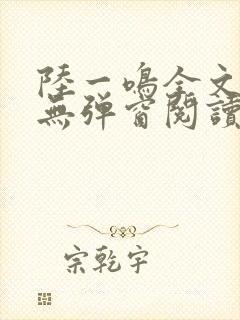 陸一鳴全文
無彈窗閱讀
宗乾宇